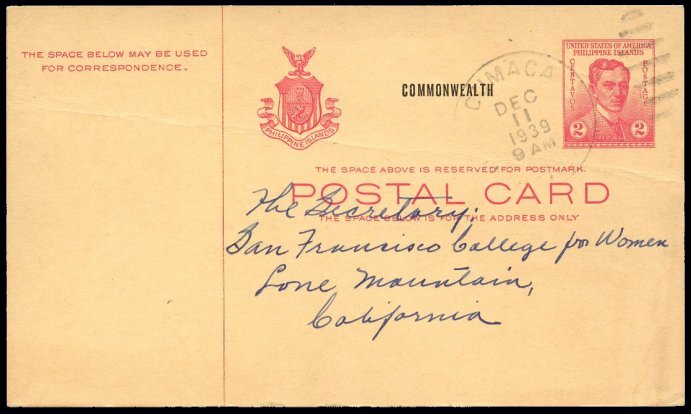 THE SPACE BELOW MAY BE USED
FOR CORRESPONDENCE.
PHILIPPINE ISLANDS
COMMONWEALTH
GUMACA
DEC
11
1939
9 AM
UNITED STATES OF AMERICA
PHILIPPINE ISLANDS
CENTAVOS
POSTAGE
2 2
THE SPACE ABOVE IS RESERVED FOR POSTMARK.
POSTAL CARD
THE SPACE BELOW IS FOR THE ADDRESS ONLY
The Secretary.
San Francisco College for Women
Lone Mountain,
California